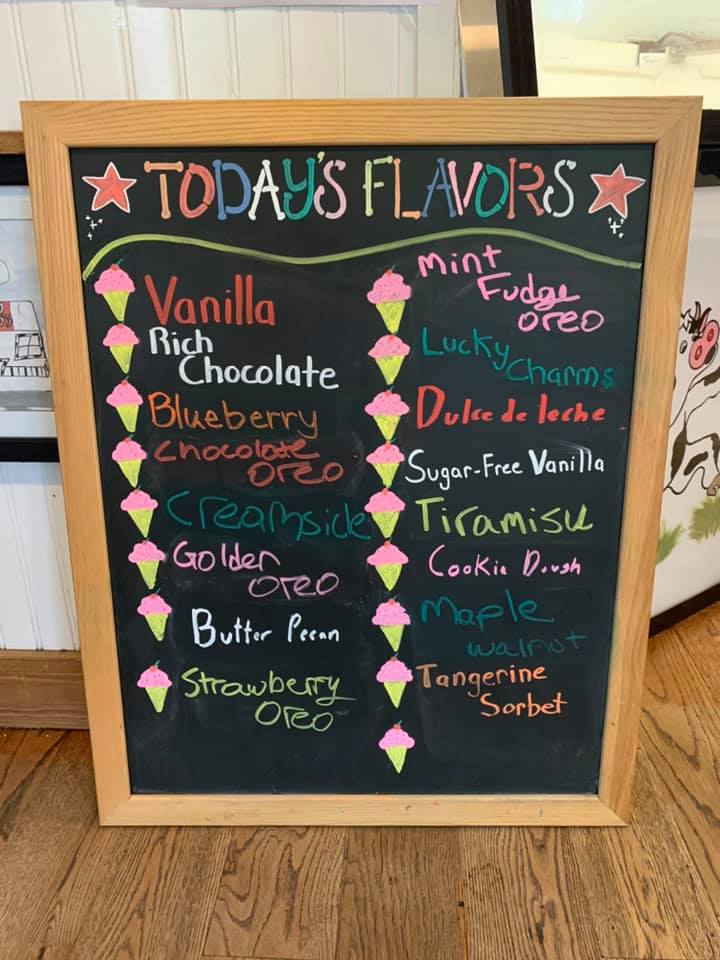 TODAY'S FLAVORS
Vanilla
Rich
Chocolate
Blueberry
Chocolate
Oreo
Creamsicle
Golden
Oreo
Butter Pecan
Strawberry
Oreo
Mint
Fudge
Oreo
Lucky
Charms
Dulce de leche
Sugar-Free Vanilla
Tiramisu
Cookie Dough
Maple
walnut
Tangerine
Sorbet